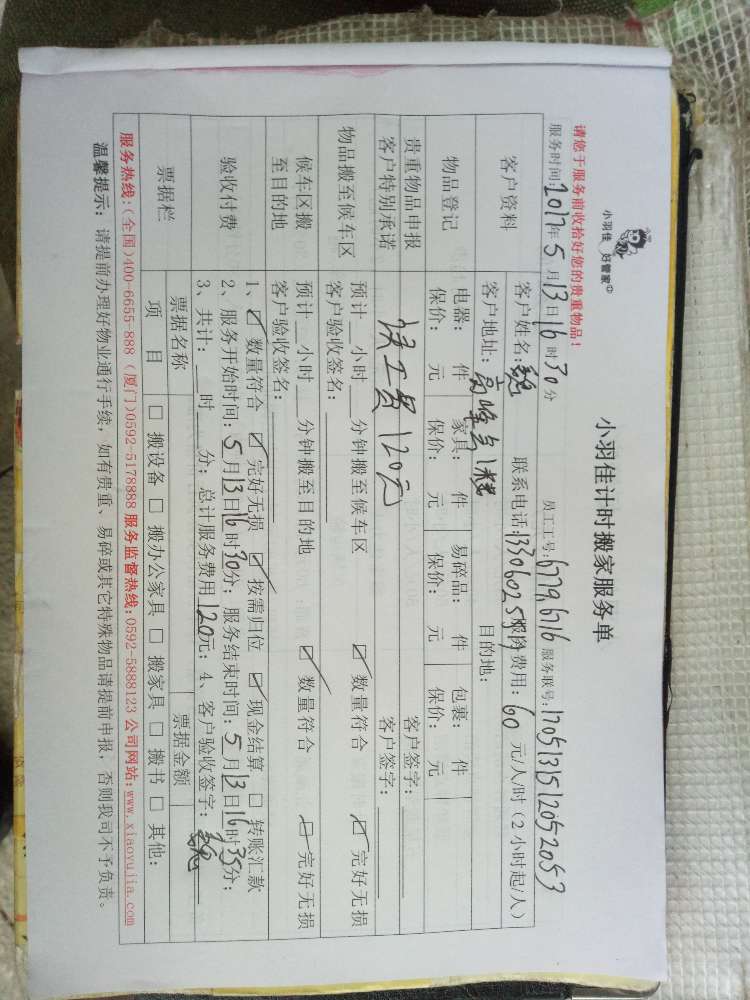 小羽佳 好管家
小羽佳计时搬家服务单
请您于服务前收拾好您的贵重物品！
员工工号：6779,6716 服务联号：1705131512052053
服务时间：2017年5月13日16时30分
客户资料 客户姓名：魏 联系电话： 服务费用：60 元/人/时（2小时起/人）
客户地址： 目的地：
物品登记 电器： 件 家具： 件 易碎品： 件 包裹： 件
保价： 元 保价： 元 保价： 元 保价： 元
贵重物品申报 客户签字：
客户特别承诺 误工费120元 客户签字：
物品搬至候车区 预计__小时__分钟搬至候车区 ☑ 数量符合 ☑ 完好无损
客户验收签名：
候车区搬至目的地 预计__小时__分钟搬至目的地 ☑ 数量符合 ☑ 完好无损
客户验收签名：
验收付费 1、☑ 数量符合 ☑ 完好无损 ☑ 按需归位 ☑ 现金结算 □ 转账汇款
2、服务开始时间：5月13日16时30分；服务结束时间：5月13日16时35分；
3、共计：__时__分；总计服务费用120元；4、客户验收签字：魏
票据栏 票据名称 票据金额
项目 □ 搬设备 □ 搬办公家具 □ 搬家具 □ 搬书 □ 其他：
服务热线：（全国）400-6655-888（厦门）0592-5178888 服务监督热线：0592-5888123 公司网站：www.xiaoyujia.com
温馨提示：请提前办理好物业通行手续，如有贵重、易碎或其它特殊物品请提前申报，否则我司不予负责。